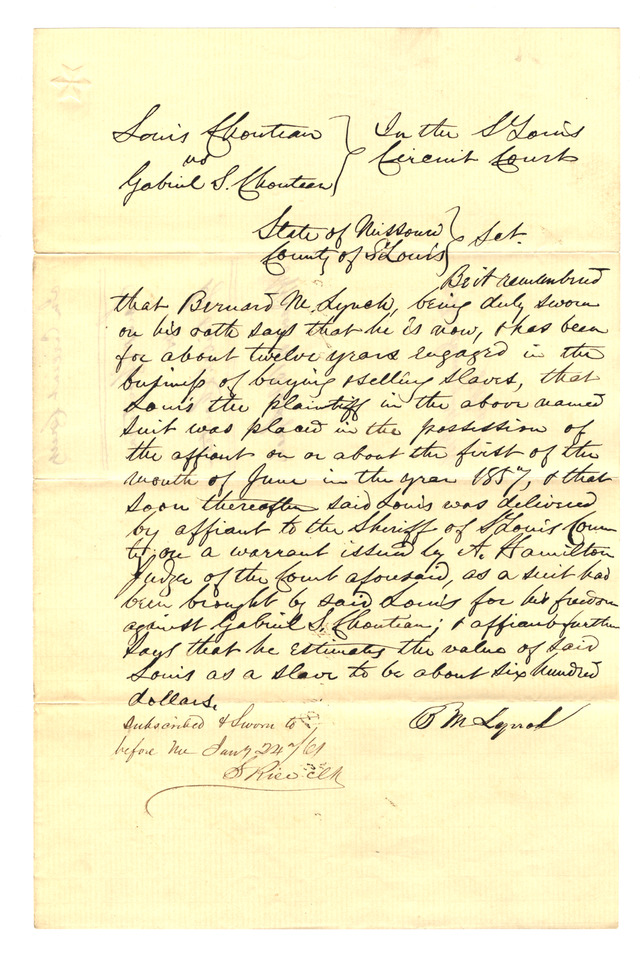 Louis Chouteau
vs
Gabriel S. Chouteau
In the St Louis
Circuit Court
State of Missouri
County of St Louis
Sct.
Be it remembered
that Bernard M. Lynch, being duly sworn
on his oath says that he is now, & has been
for about twelve years engaged in the
business of buying & selling slaves, that
Louis the plaintiff in the above named
suit was placed in the possession of
the affiant on or about the first of the
month of June in the year 1857, & that
soon thereafter said Louis was delivered
by affiant to the Sheriff of St Louis Coun
ty, on a warrant issued by A. Hamilton
Judge of the Court aforesaid, as a suit had
been brought by said Louis for his freedom
against Gabriel S. Chouteau; & affiant further
says that he estimates the value of said
Louis as a slave to be about six hundred
dollars.
B M Lynch
Subscribed & Sworn to
before me Jany 24th/61
S Rice clk